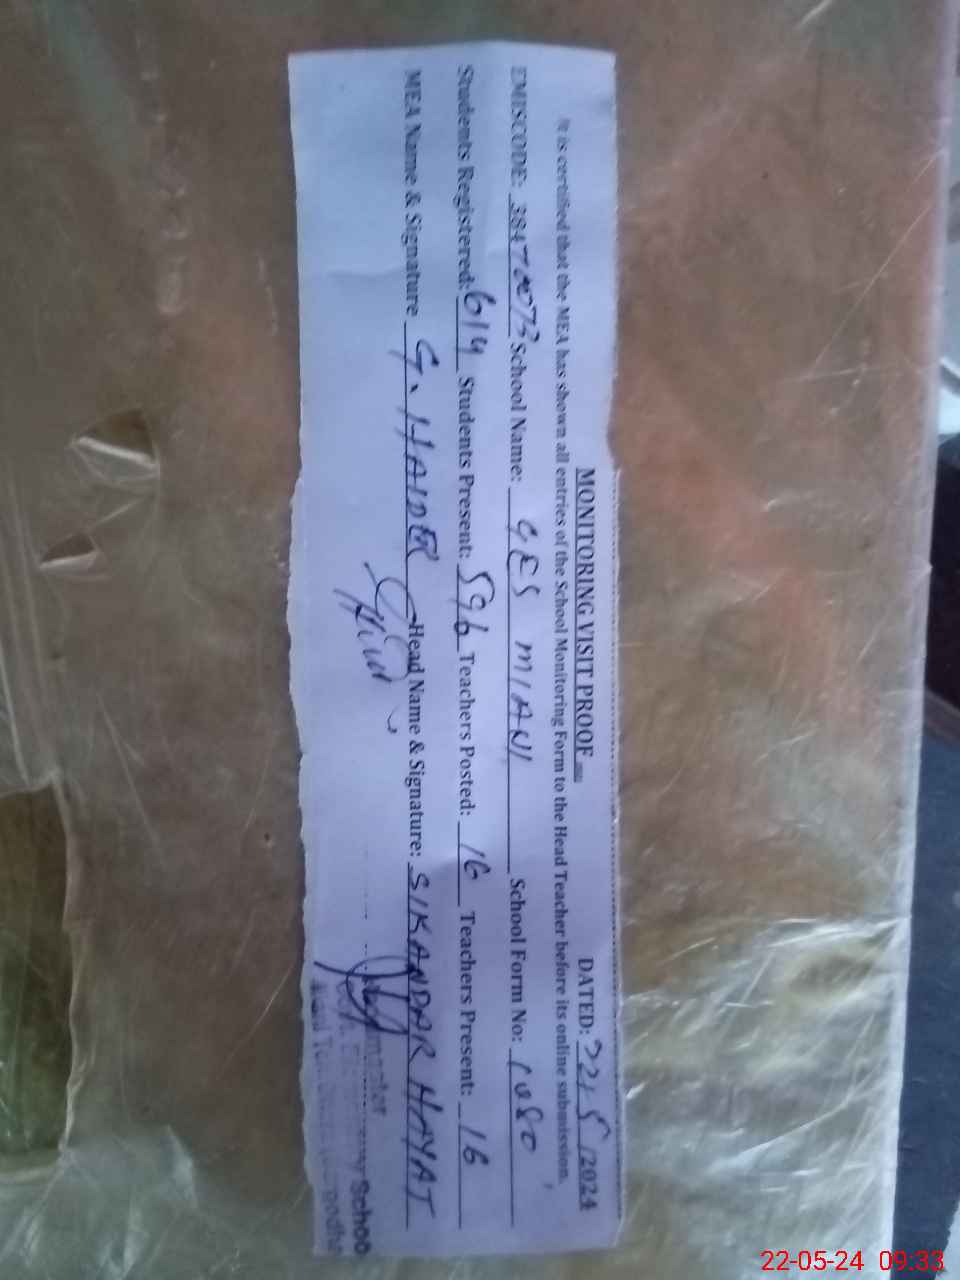 MONITORING VISIT PROOF DATED: 22/5/2024
It is certified that the MEA has shown all entries of the School Monitoring Form to the Head Teacher before its online submission.
EMISCODE: 38470073 School Name: GES MIANI School Form No: 1080
Students Registered: 614 Students Present: 596 Teachers Posted: 16 Teachers Present: 16
MEA Name & Signature G. HAIDER Head Name & Signature: SIKANDAR HAYAT
22-05-24 09:33